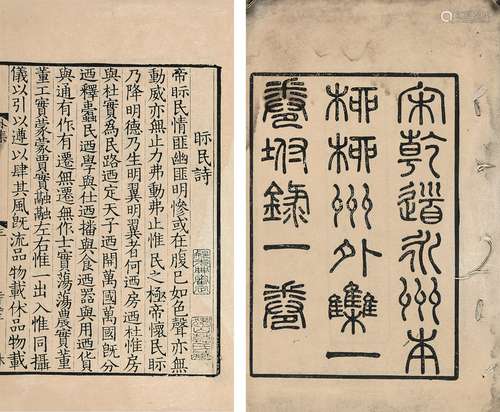 宋乾道永州本
柳柳州外集一
卷坿錄一卷
眎民詩
帝眎民情匪幽匪明慘或在腹已如色聲亦無
動威亦無止力弗動弗止惟民之極帝懷民眎
乃降明德乃生明翼明翼者何迺房迺杜惟房
與杜實為民路迺定天子迺開萬國萬國既分
迺釋蠹民迺學與仕迺播與食迺器與用迺貨
與通有作有遷無遷無作士實蕩蕩農實董
董工實蒙蒙賈實融融左右惟一出入惟同攝
儀以引以遵以肆其風既流品物載休品物載